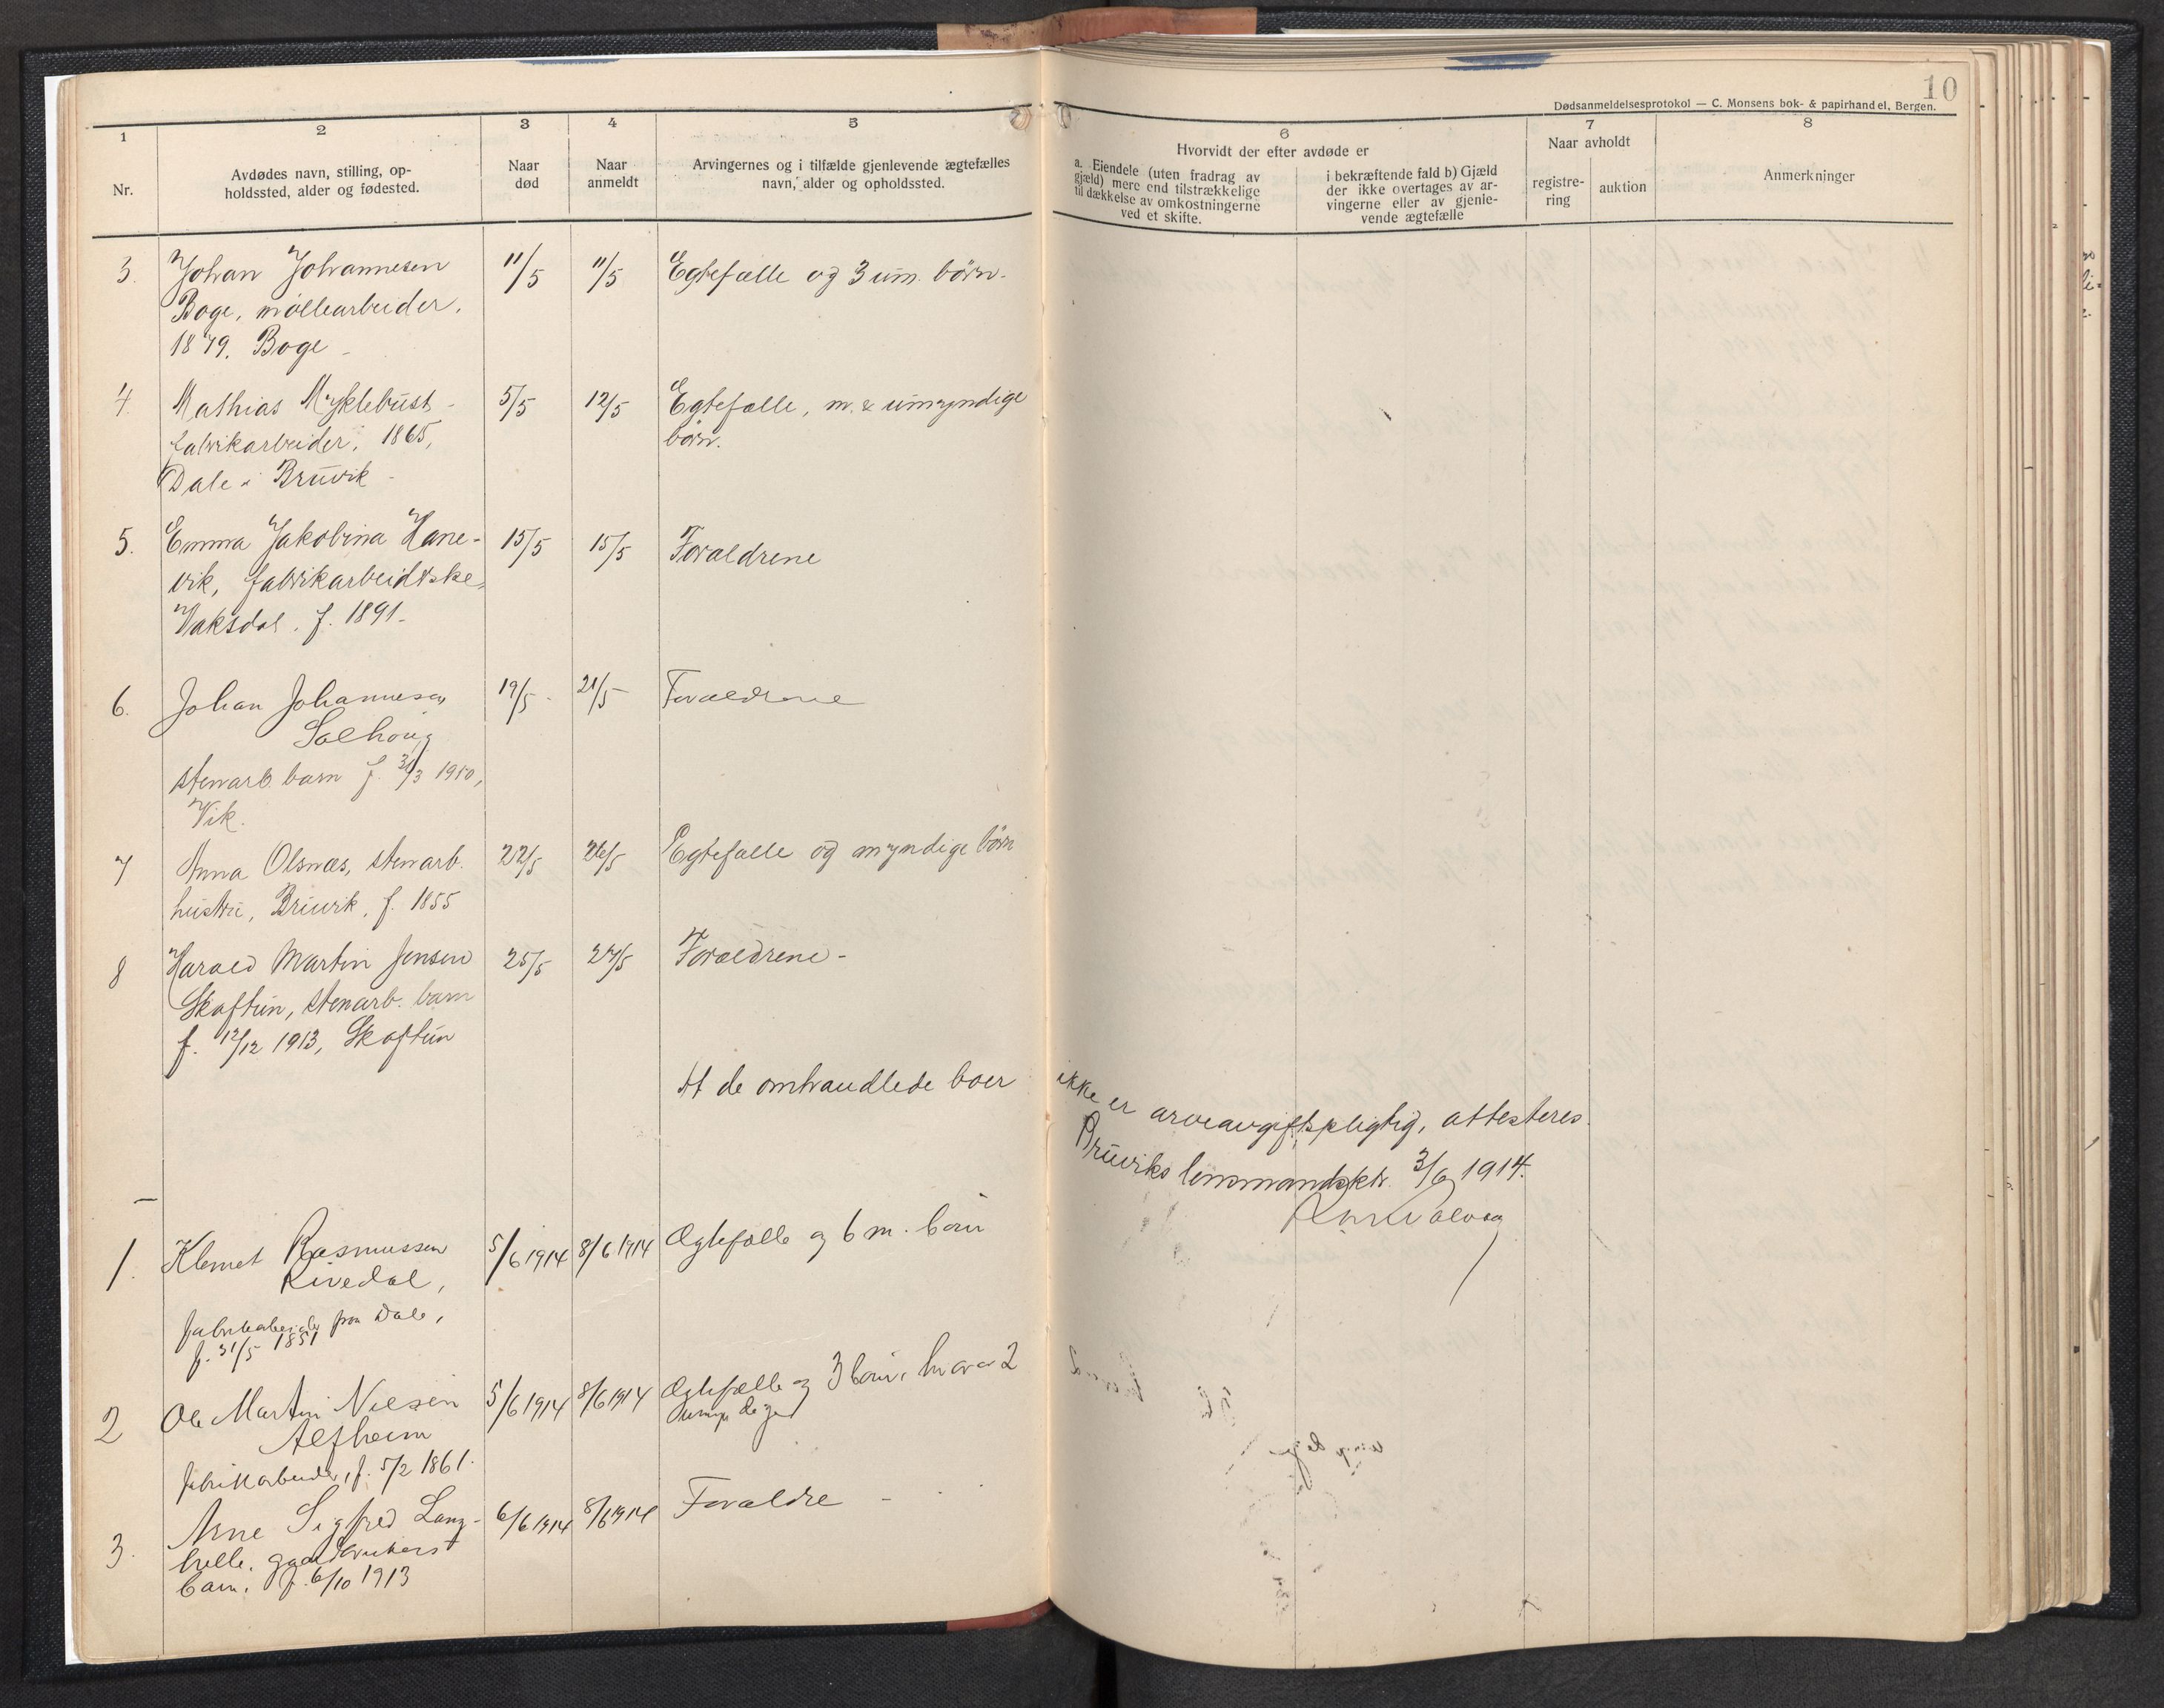 10
Dødsanmeldelsesprotokol — C. Monsens bok- & papirhandel, Bergen.
1
Nr.
2
Avdødes navn, stilling, op-
holdssted, alder og fødested.
3
Naar
død
4
Naar
anmeldt
5
Arvingernes og i tilfælde gjenlevende ægtefælles
navn, alder og opholdssted.
6
Hvorvidt der efter avdøde er
a. Eiendele (uten fradrag av
gjæld) mere end tilstrækkelige
til dækkelse av omkostningerne
ved et skifte.
i bekræftende fald b) Gjæld
der ikke overtages av ar-
vingerne eller av gjenle-
vende ægtefælle
7
Naar avholdt
registre-
ring
auktion
8
Anmerkninger
3. Johan Johannesen 11/5 11/5 Egtefælle og 3 um. børn.
Boge, møllearbeider,
1879. Boge
4. Mathias Myklebust 5/5 12/5 Egtefælle, m. & umyndige
fabrikarbeider, 1865, børn.
Dale i Bruvik
5. Emma Jakobina Hane- 15/5 15/5 Forældrene
vik, fabrikarbeiderske,
Vaksdal. f. 1891.
6. Johan Johannesen 19/5 21/5 Forældrene
Solhoug
stenarb. barn f. 31/3 1910,
Vik.
7 Anna Olsnæs, stenarb. 22/5 26/5 Egtefælle og myndige børn
hustru, Bruvik, f. 1855
8 Harald Martin Jensen 25/5 27/5 Forældrene
Skaftun, stenarb. barn
f. 12/12 1913, Skaftun
At de omhandlede boer ikke er arveavgiftspligtig, attesteres.
Bruviks lensmandsktr. 3/6 1914.
1. Klemet Rasmussen 5/6 1914 8/6 1914 Ægtefælle og 6 m. børn
Rivedal,
fabrikarbeider fra Dale,
f. 31/5 1851
2 Ole Martin Nilsen 5/6 1914 8/6 1914 Ægtefælle og 3 børn, hvorav 2
Alfheim umyndige
fabrikarbeider, f. 5/2 1861.
3. Arne Sigfred Lang- 6/6 1914 8/6 1914 Forældre
helle, gaardbrukers
barn, f. 6/10 1913